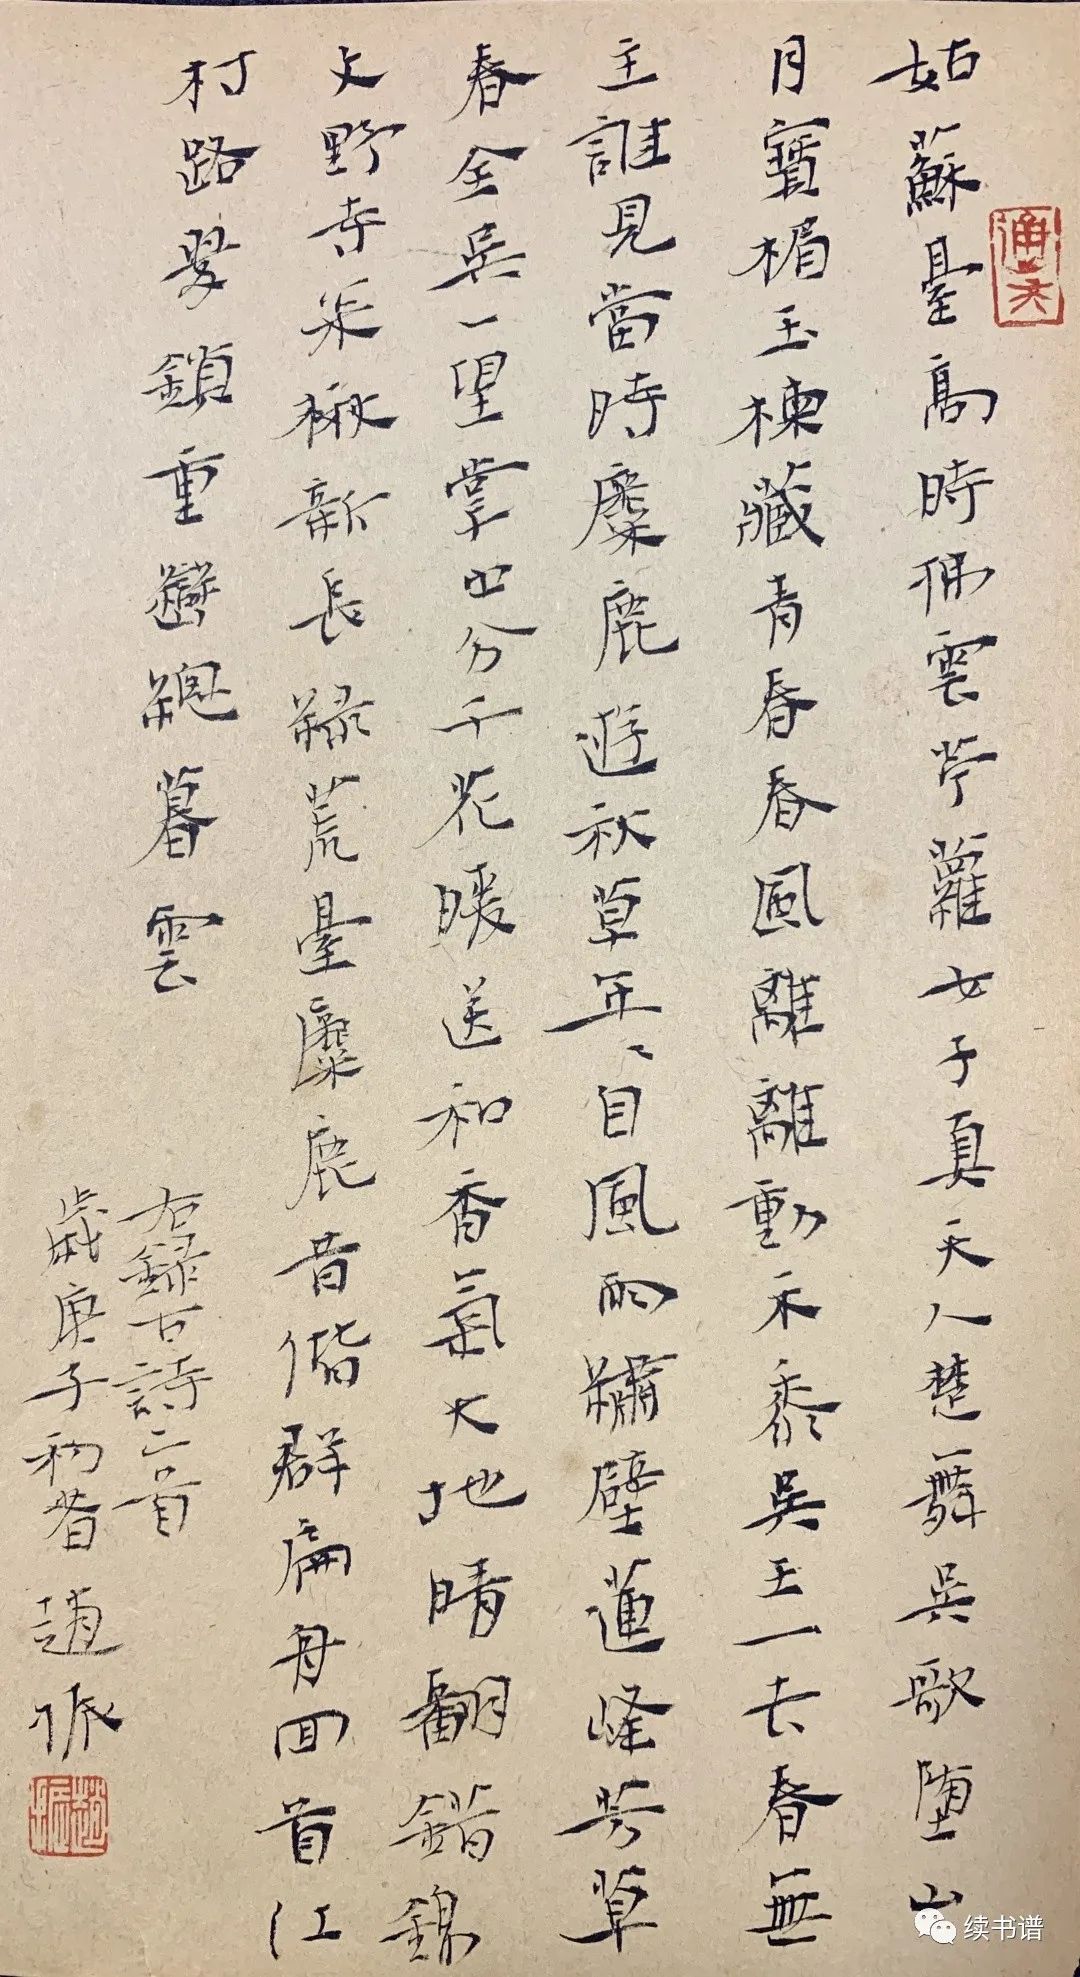 姑蘇臺高時拂雲苧蘿女子真天人楚舞吳歌墮山
月寶楣玉棟藏青春春風離離動禾黍吳王一去春無
主誰見當時麋鹿遊秋草年〻自風雨繡壁蓮峰芳草
春全吳一望掌中分千花暖送和香氣大地晴翻錯錦
文野寺松楸新長綠荒臺麋鹿昔偕群扁舟回首江
村路鎖重巒總暮雲
右錄古詩二首
歲庚子初春趙振
续书谱